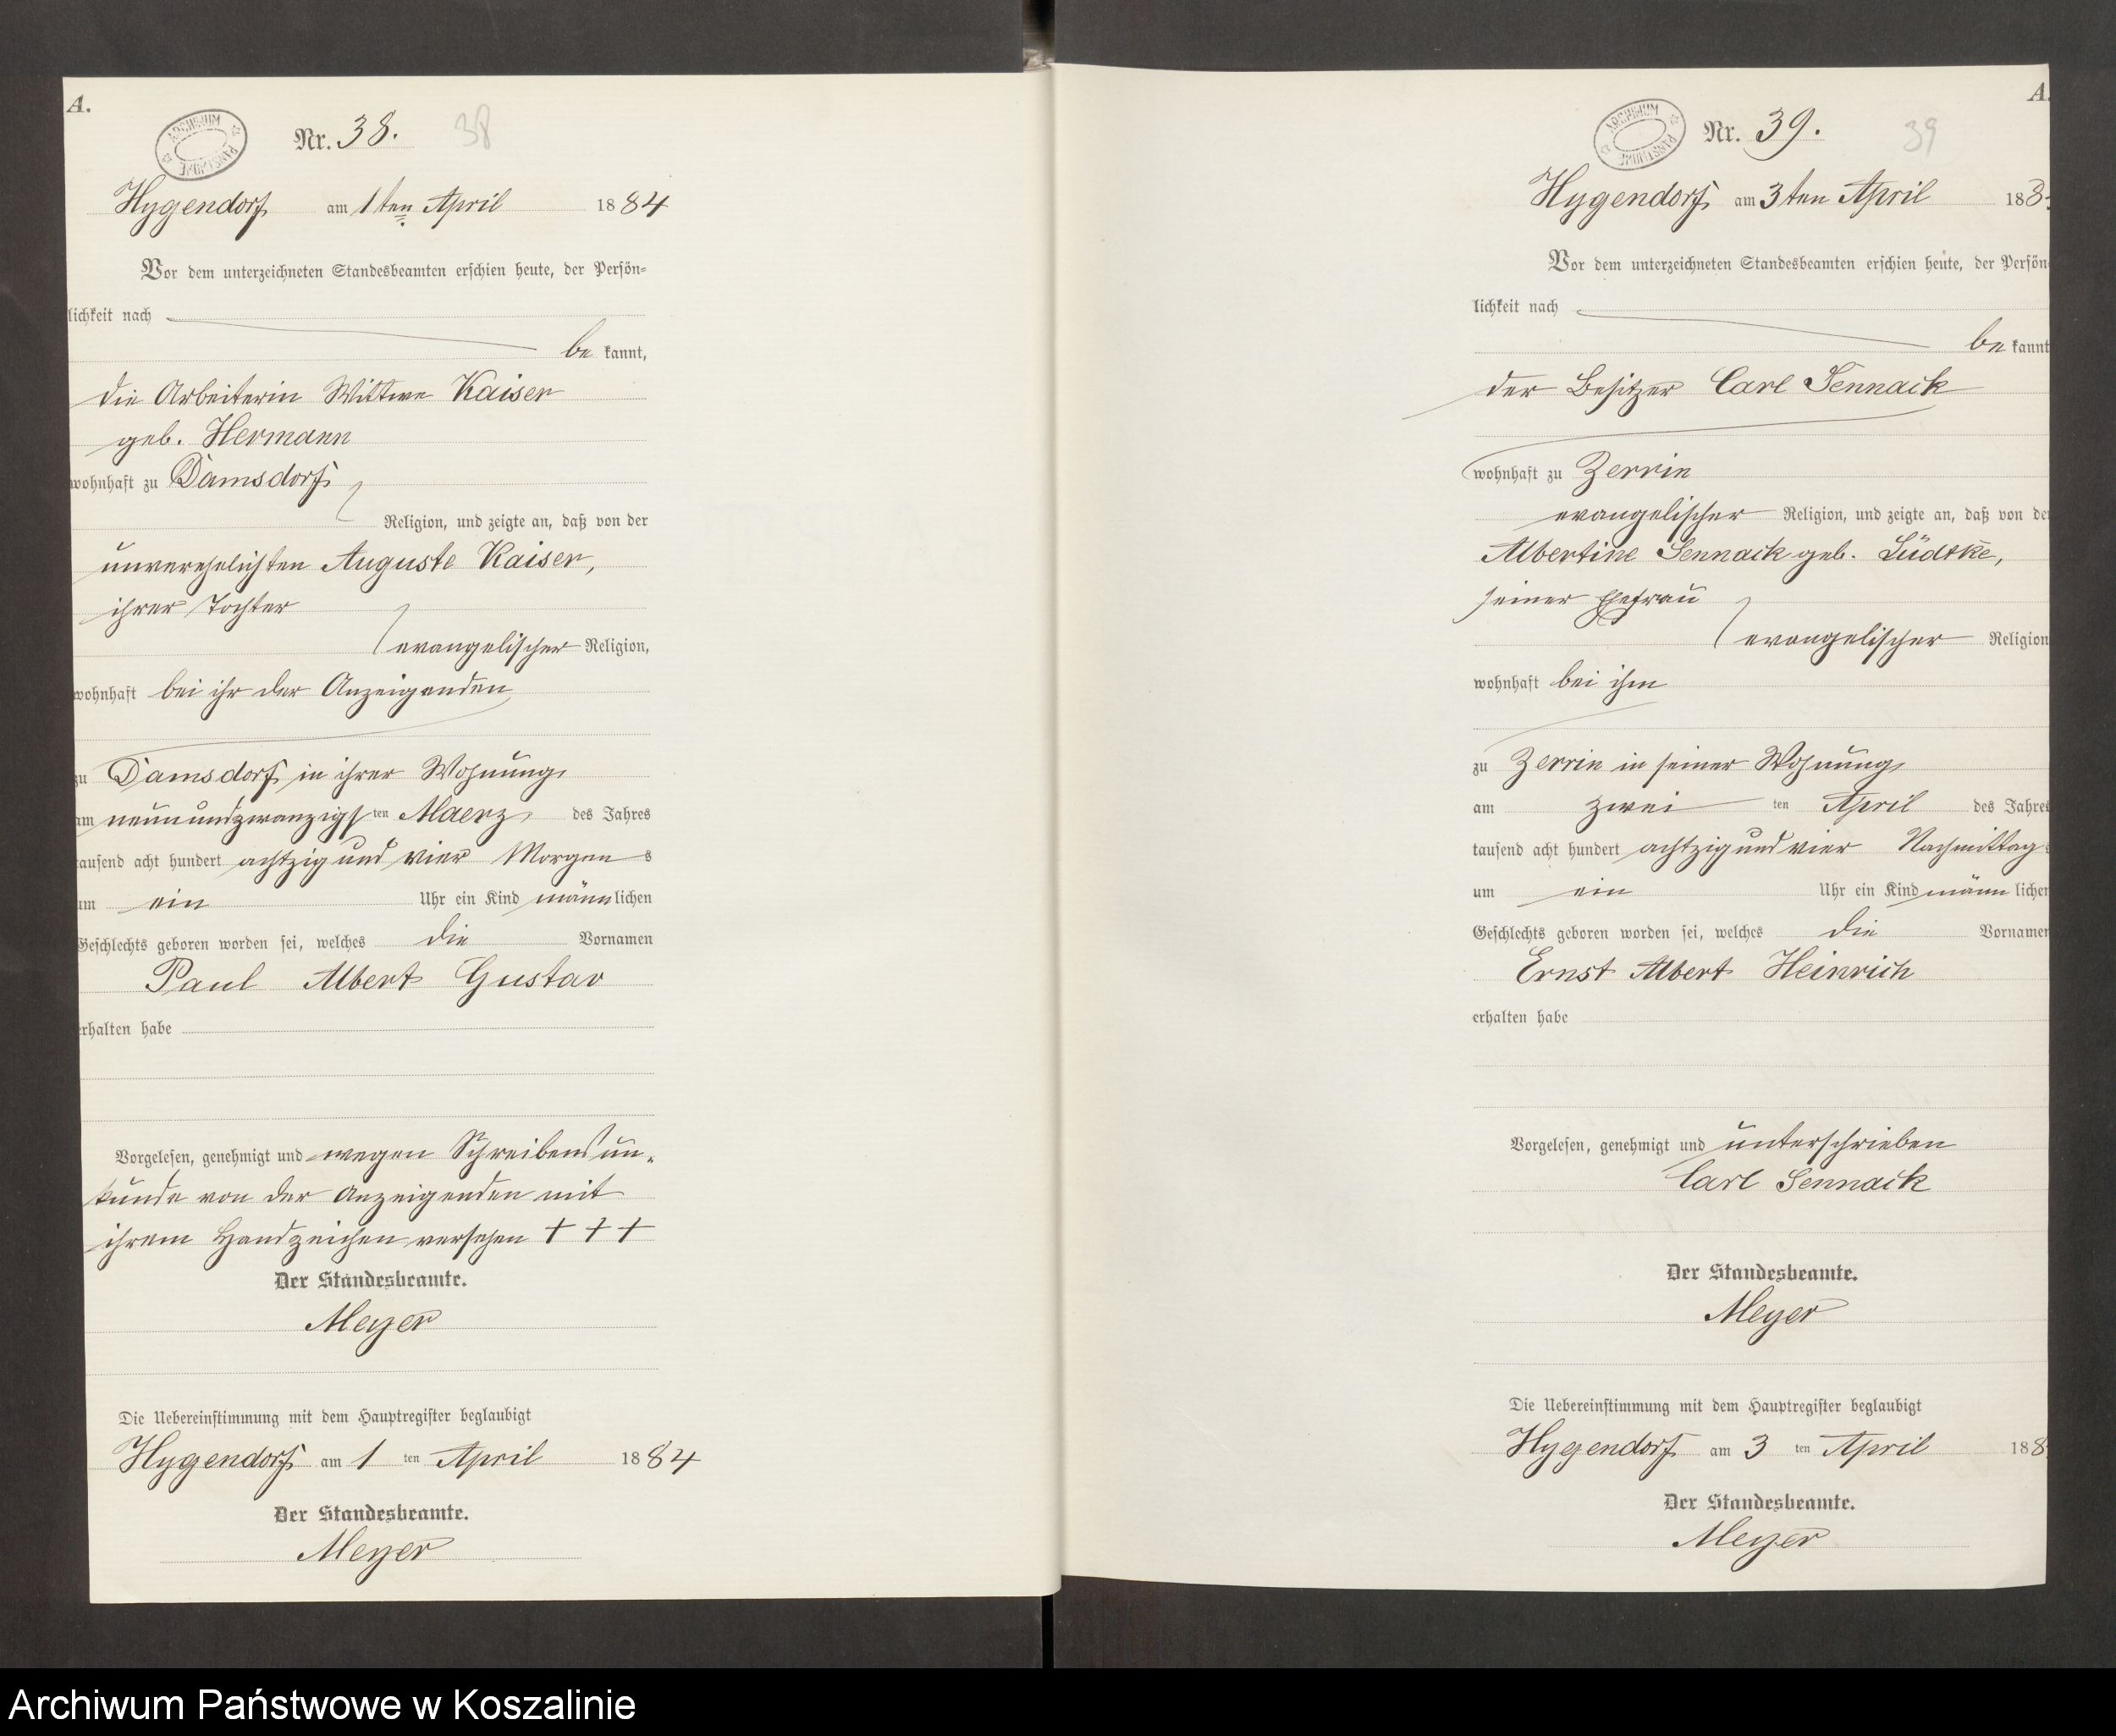 A.
ARCHIWUM PAŃSTWOWE
Nr. 38. 38
Hygendorf am 1ten April 1884
Vor dem unterzeichneten Standesbeamten erschien heute, der Persön=
lichkeit nach
be kannt,
die Arbeiterin Wittwe Kaiser
geb. Hermann
wohnhaft zu Damsdorf
Religion, und zeigte an, daß von der
unverehelichten Auguste Kaiser,
ihrer Tochter
evangelischer Religion,
wohnhaft bei ihr der Anzeigenden
zu Damsdorf in ihrer Wohnung
am neunundzwanzigsten Maerz des Jahres
tausend acht hundert achtzig und vier Morgens
um ein Uhr ein Kind männlichen
Geschlechts geboren worden sei, welches die Vornamen
Paul Albert Gustav
erhalten habe
Vorgelesen, genehmigt und wegen Schreibensun-
kunde von der Anzeigenden mit
ihrem Handzeichen versehen + + +
Der Standesbeamte.
Meyer
Die Uebereinstimmung mit dem Hauptregister beglaubigt
Hygendorf am 1 ten April 1884
Der Standesbeamte.
Meyer
A.
ARCHIWUM PAŃSTWOWE
Nr. 39. 39
Hygendorf am 3ten April 188
Vor dem unterzeichneten Standesbeamten erschien heute, der Persön
lichkeit nach
be kannt
der Besitzer Carl Sennack
wohnhaft zu Zerrin
evangelischer Religion, und zeigte an, daß von der
Albertine Sennack geb. Lüdtke,
seiner Ehefrau
evangelischer Religion
wohnhaft bei ihm
zu Zerrin in seiner Wohnung
am zwei ten April des Jahres
tausend acht hundert achtzig und vier Nachmittags
um ein Uhr ein Kind männlichen
Geschlechts geboren worden sei, welches die Vornamen
Ernst Albert Heinrich
erhalten habe
Vorgelesen, genehmigt und unterschrieben
Carl Sennack
Der Standesbeamte.
Meyer
Die Uebereinstimmung mit dem Hauptregister beglaubigt
Hygendorf am 3 ten April 188
Der Standesbeamte.
Meyer
Archiwum Państwowe w Koszalinie